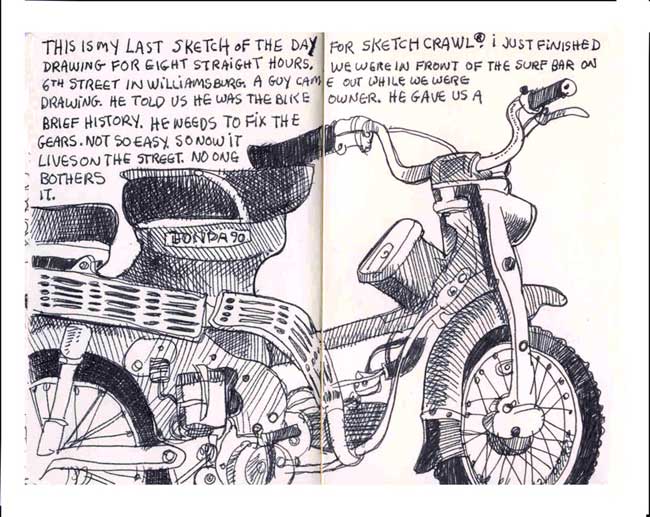 THIS IS MY LAST SKETCH OF THE DAY FOR SKETCHCRAWL® i JUST FINISHED
DRAWING FOR EIGHT STRAIGHT HOURS. WE WERE IN FRONT OF THE SURF BAR ON
6TH STREET IN WILLIAMSBURG. A GUY CAME OUT WHILE WE WERE
DRAWING. HE TOLD US HE WAS THE BIKE OWNER. HE GAVE US A
BRIEF HISTORY. HE NEEDS TO FIX THE
GEARS. NOT SO EASY. SO NOW IT
LIVES ON THE STREET. NO ONE
BOTHERS
IT.
HONDA 90